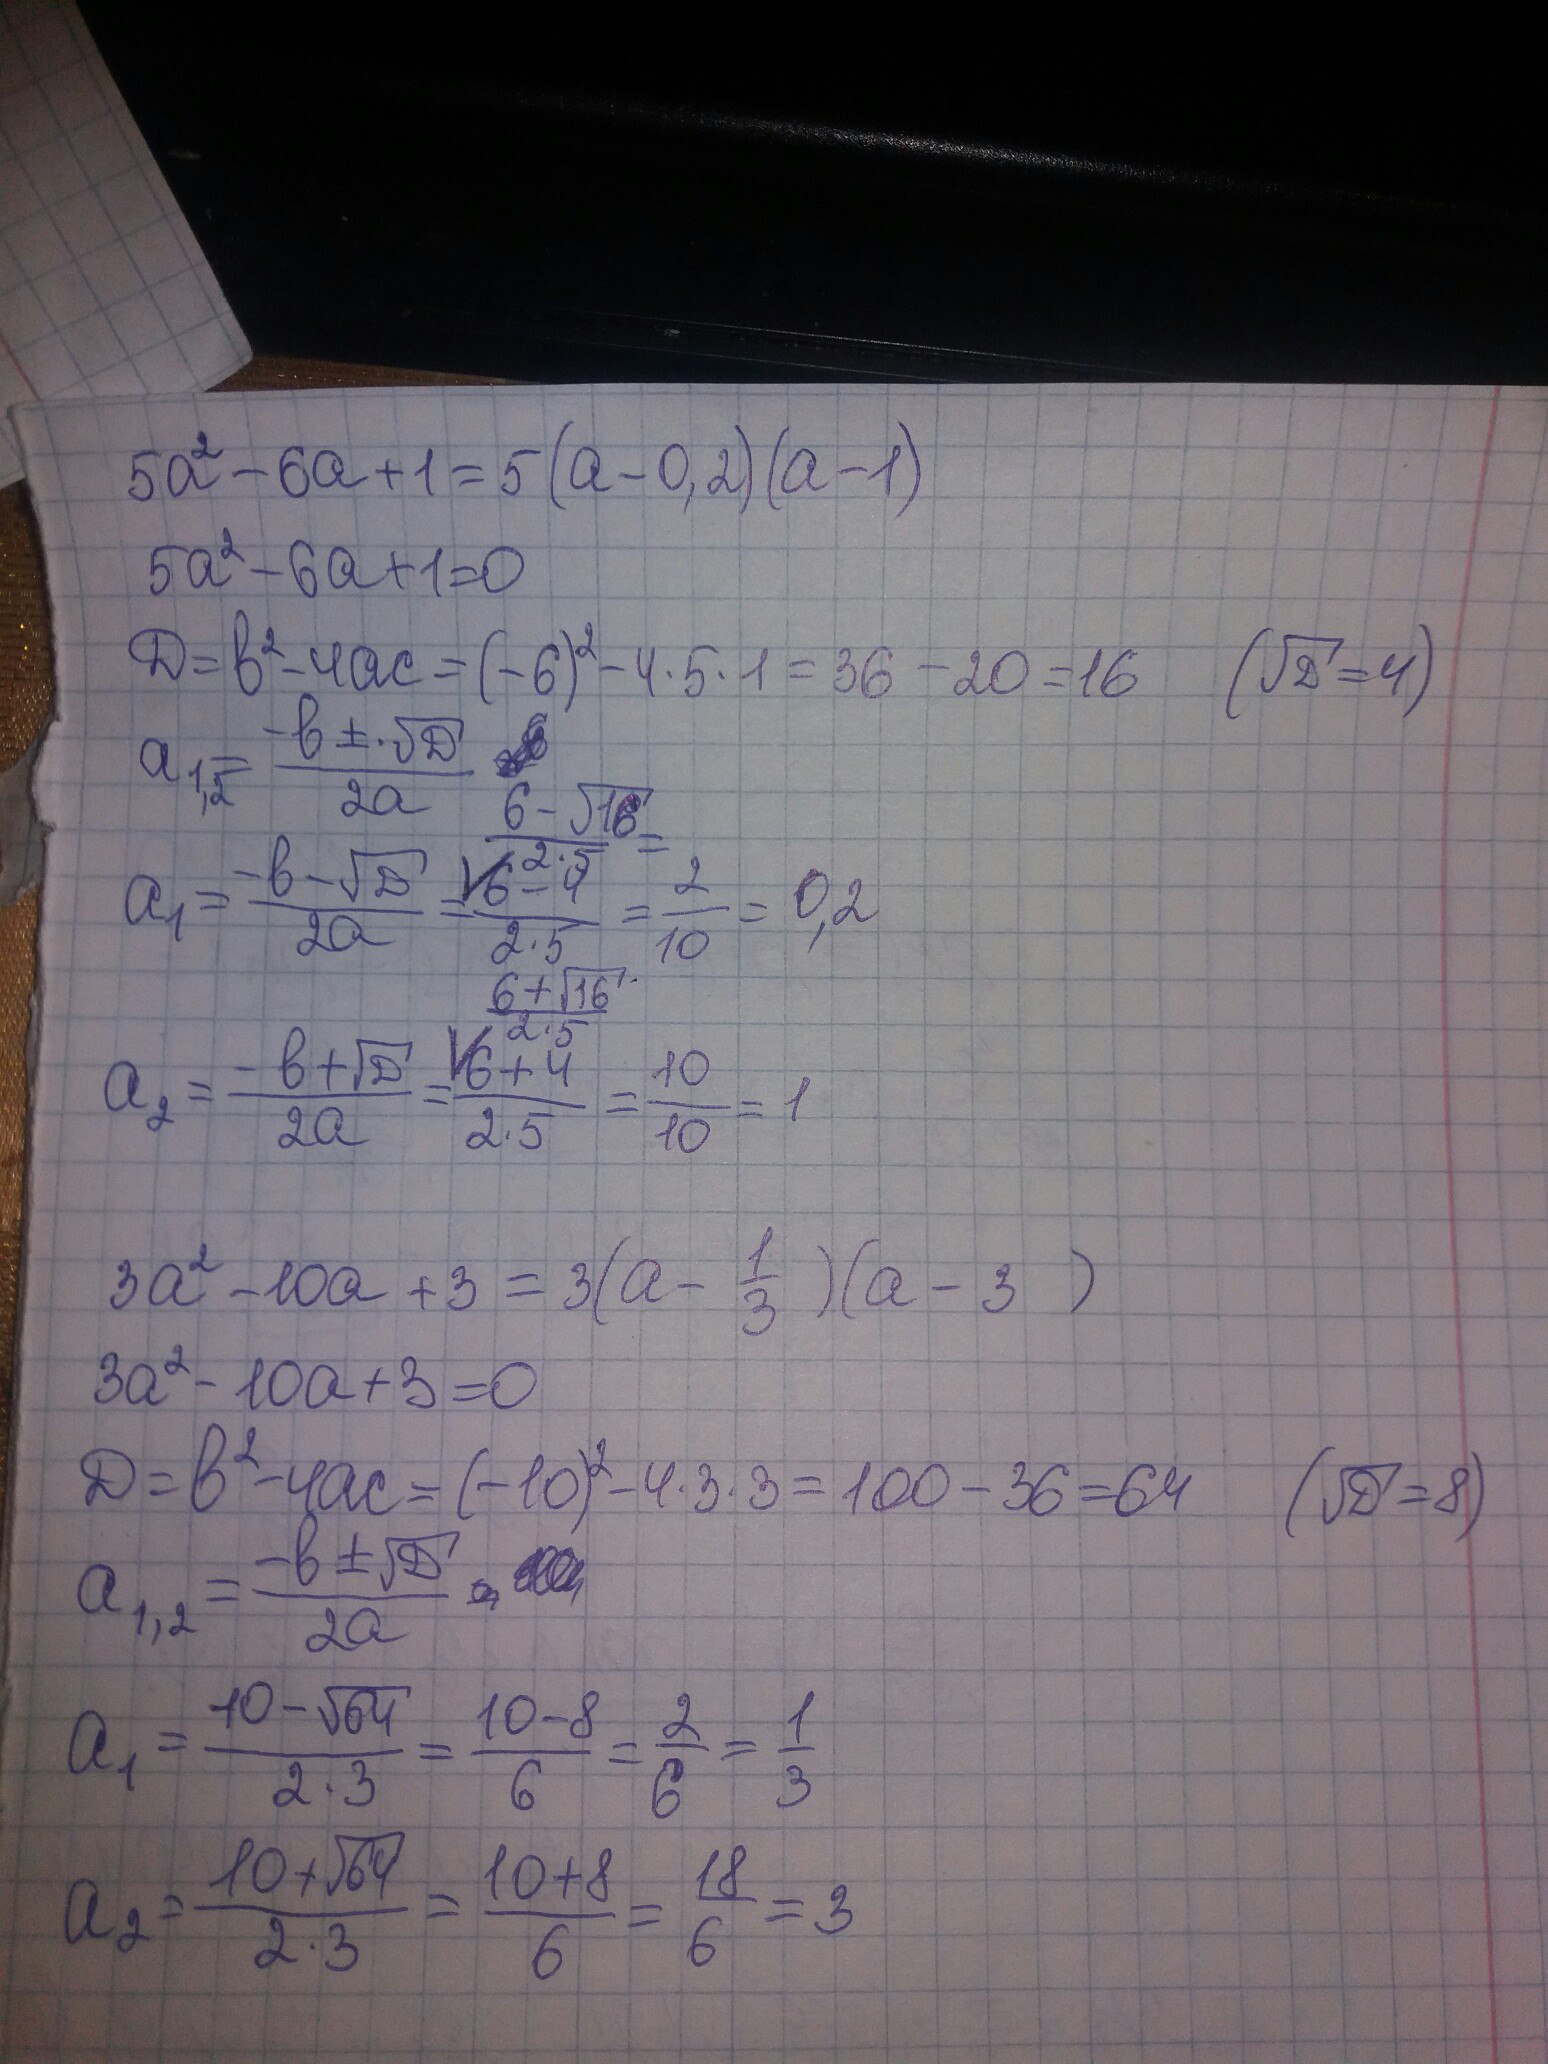 5a² - 6a + 1 = 5(a - 0,2)(a - 1)
5a² - 6a + 1 = 0
Д = b² - 4ac = (-6)² - 4·5·1 = 36 - 20 = 16 (√Д = 4)
a₁,₂ = (-b ± √Д)/(2a)
(6 - √16)/(2·5) =
a₁ = (-b - √Д)/(2a) = (6 - 4)/(2·5) = 2/10 = 0,2
(6 + √16)/(2·5)
a₂ = (-b + √Д)/(2a) = (6 + 4)/(2·5) = 10/10 = 1
3a² - 10a + 3 = 3(a - 1/3)(a - 3)
3a² - 10a + 3 = 0
Д = b² - 4ac = (-10)² - 4·3·3 = 100 - 36 = 64 (√Д = 8)
a₁,₂ = (-b ± √Д)/(2a)
a₁ = (10 - √64)/(2·3) = (10 - 8)/6 = 2/6 = 1/3
a₂ = (10 + √64)/(2·3) = (10 + 8)/6 = 18/6 = 3